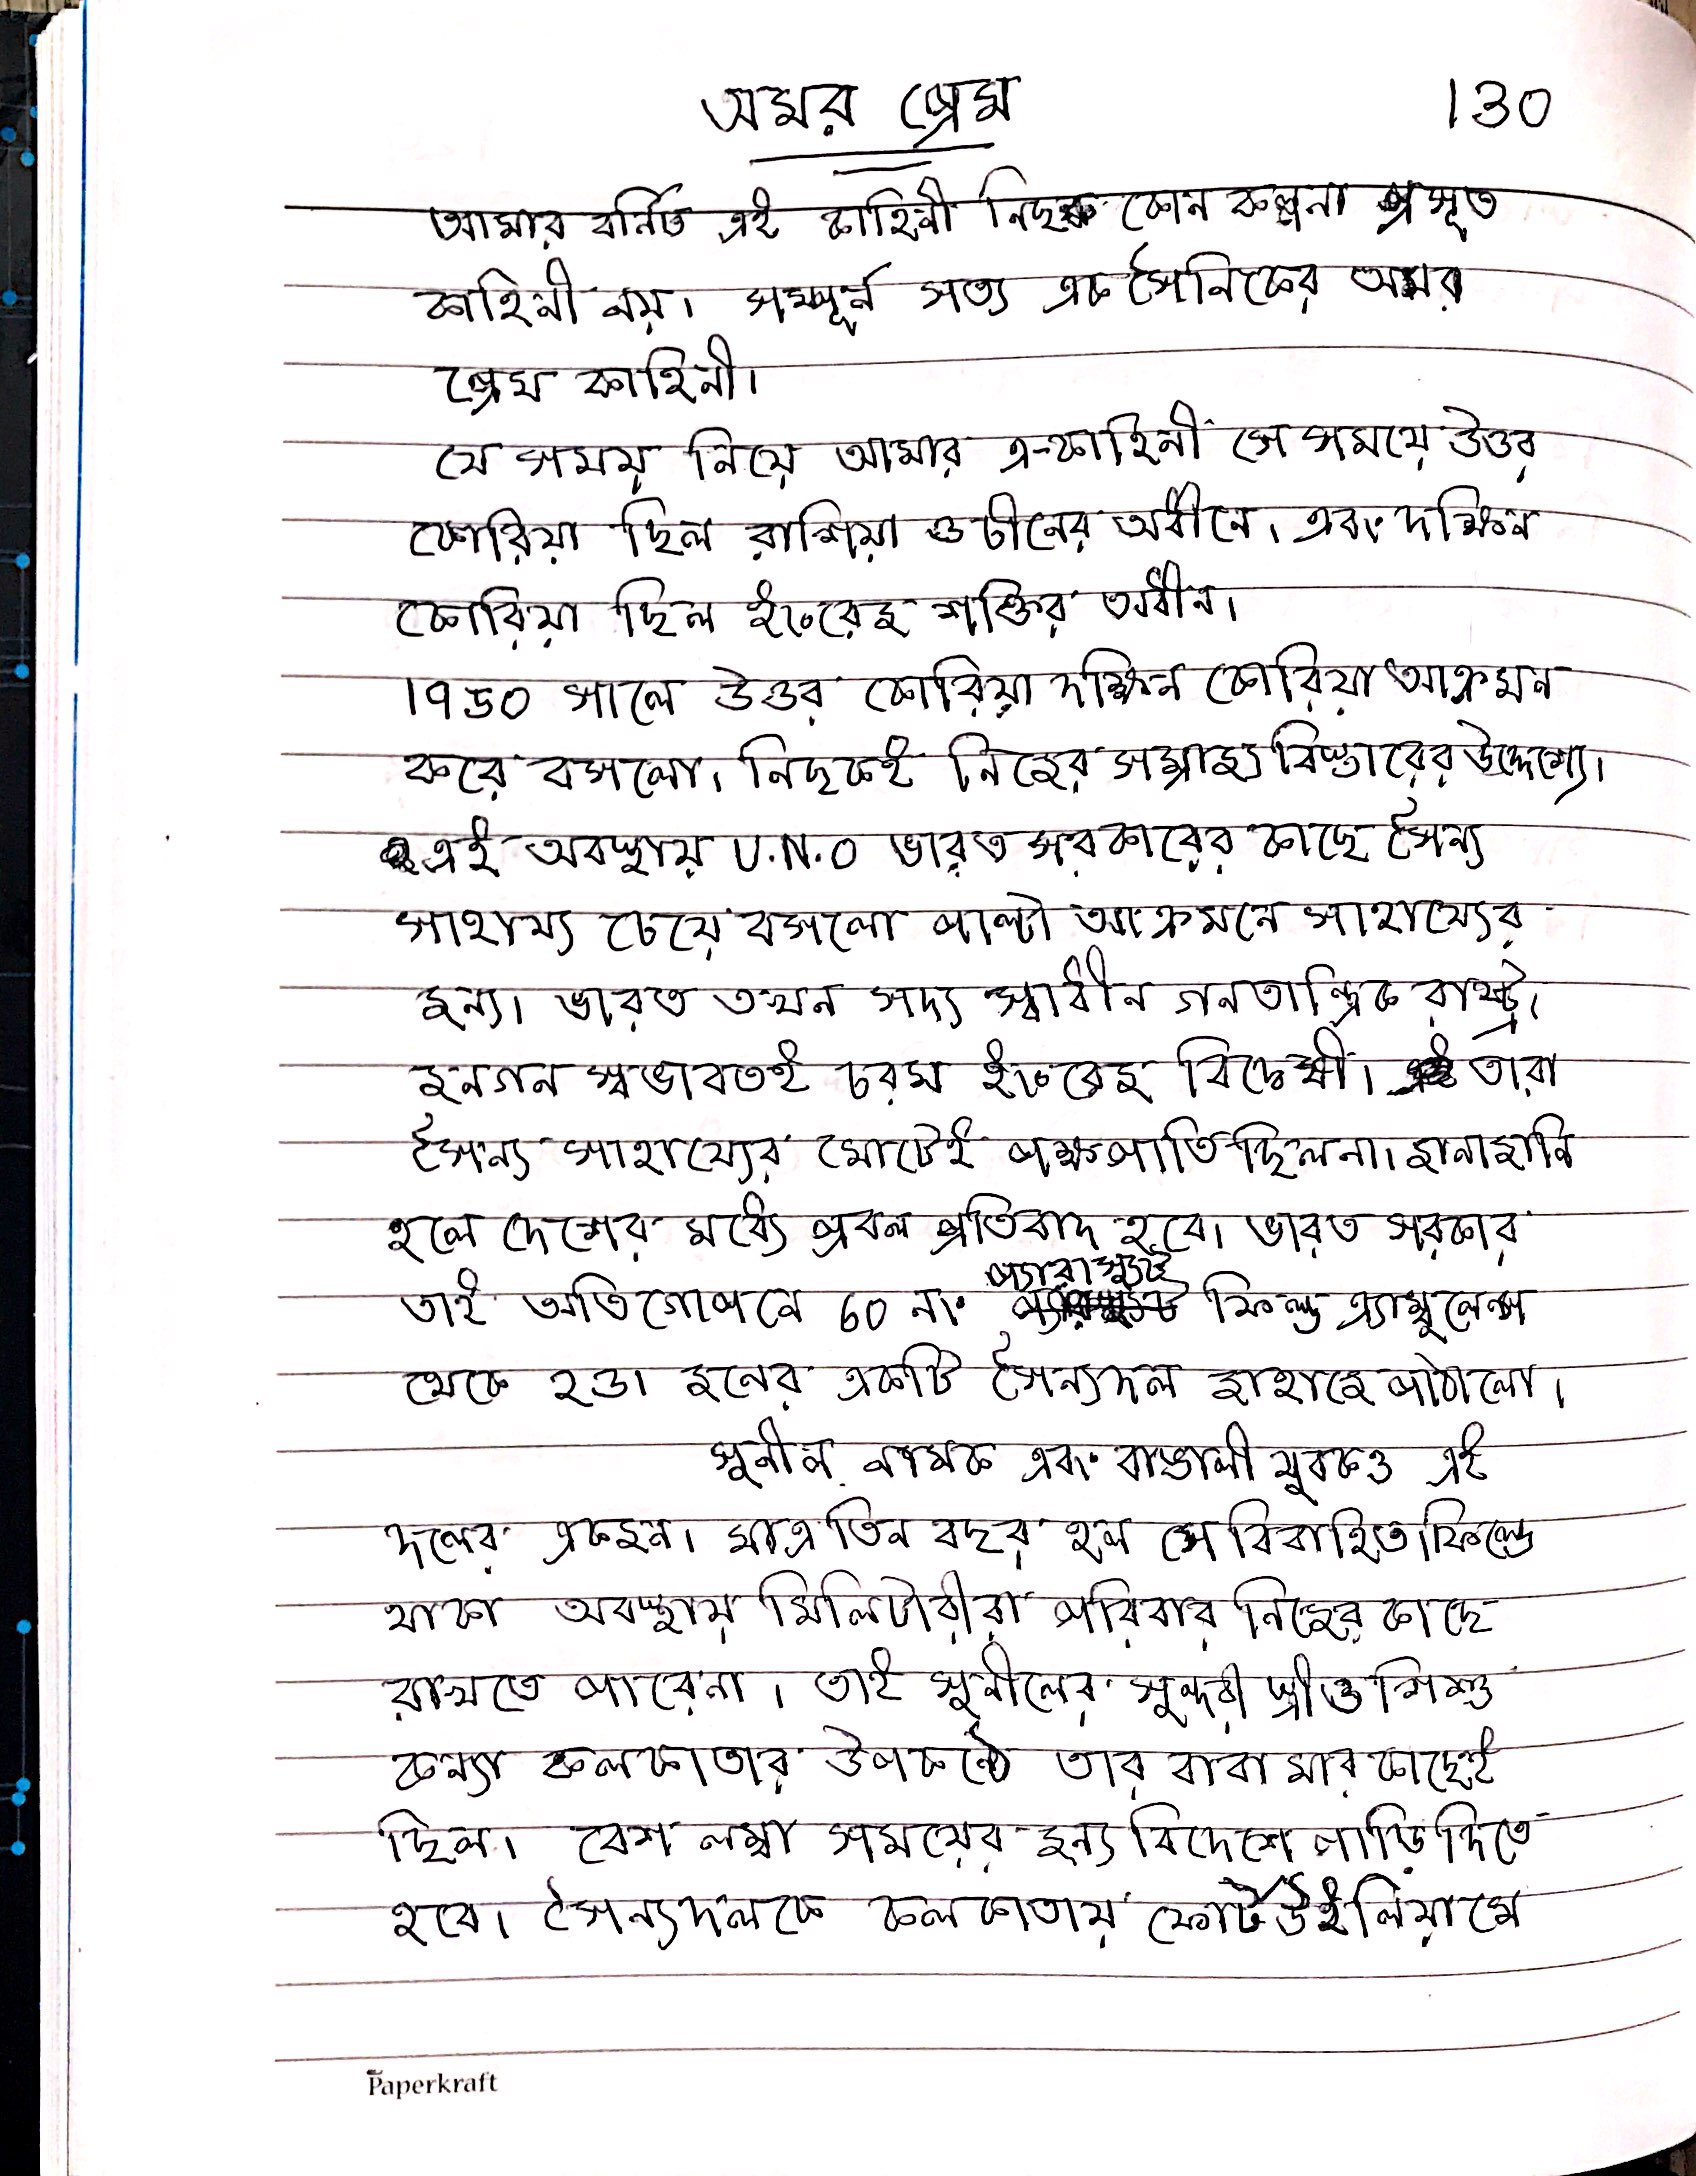 অমর প্রেম 130
আমার বর্নিত এই কাহিনী নিছক কোন কল্পনা প্রসূত
কাহিনী নয়। সম্পূর্ন সত্য এক সৈনিকের অমর
প্রেম কাহিনী।
যে সময় নিয়ে আমার এ-কাহিনী সে সময়ে উত্তর
কোরিয়া ছিল রাশিয়া ও চীনের অধীনে। এবং দক্ষিন
কোরিয়া ছিল ইংরেজ শক্তির অধীন।
1950 সালে উত্তর কোরিয়া দক্ষিন কোরিয়া আক্রমন
করে বসলো। নিছকই নিজের সম্রাজ্য বিস্তারের উদ্দেশ্যে।
এই অবস্থায় U.N.O ভারত সরকারের কাছে সৈন্য
সাহায্য চেয়ে বসলো পাল্টা আক্রমনে সাহায্যের
জন্য। ভারত তখন সদ্য স্বাধীন গনতান্ত্রিক রাষ্ট্র।
জনগন স্বভাবতই চরম ইংরেজ বিদ্বেষী। তারা
সৈন্য সাহায্যের মোটেই পক্ষপাতি ছিলনা। জানাজানি
হলে দেশের মধ্যে প্রবল প্রতিবাদ হবে। ভারত সরকার
তাই অতি গোপনে 60 নং প্যারাস্যুট ফিল্ড এ্যাম্বুলেন্স
থেকে ২৩১ জনের একটি সৈন্যদল জাহাজে পাঠালো।
সুনীল নামক এবং বাঙালী যুবকও এই
দলের একজন। মাত্র তিন বছর হল সে বিবাহিত। ফিল্ডে
থাকা অবস্থায় মিলিটারীরা পরিবার নিজের কাছে
রাখতে পারেনা। তাই সুনীলের সুন্দরী স্ত্রী ও শিশু
কন্যা কলকাতার উপকন্ঠে তার বাবা মার কাছেই
ছিল। বেশ লম্বা সময়ের জন্য বিদেশে পাড়ি দিতে
হবে। সৈন্যদলকে কলকাতায় ফোর্ট উইলিয়ামে
Paperkraft